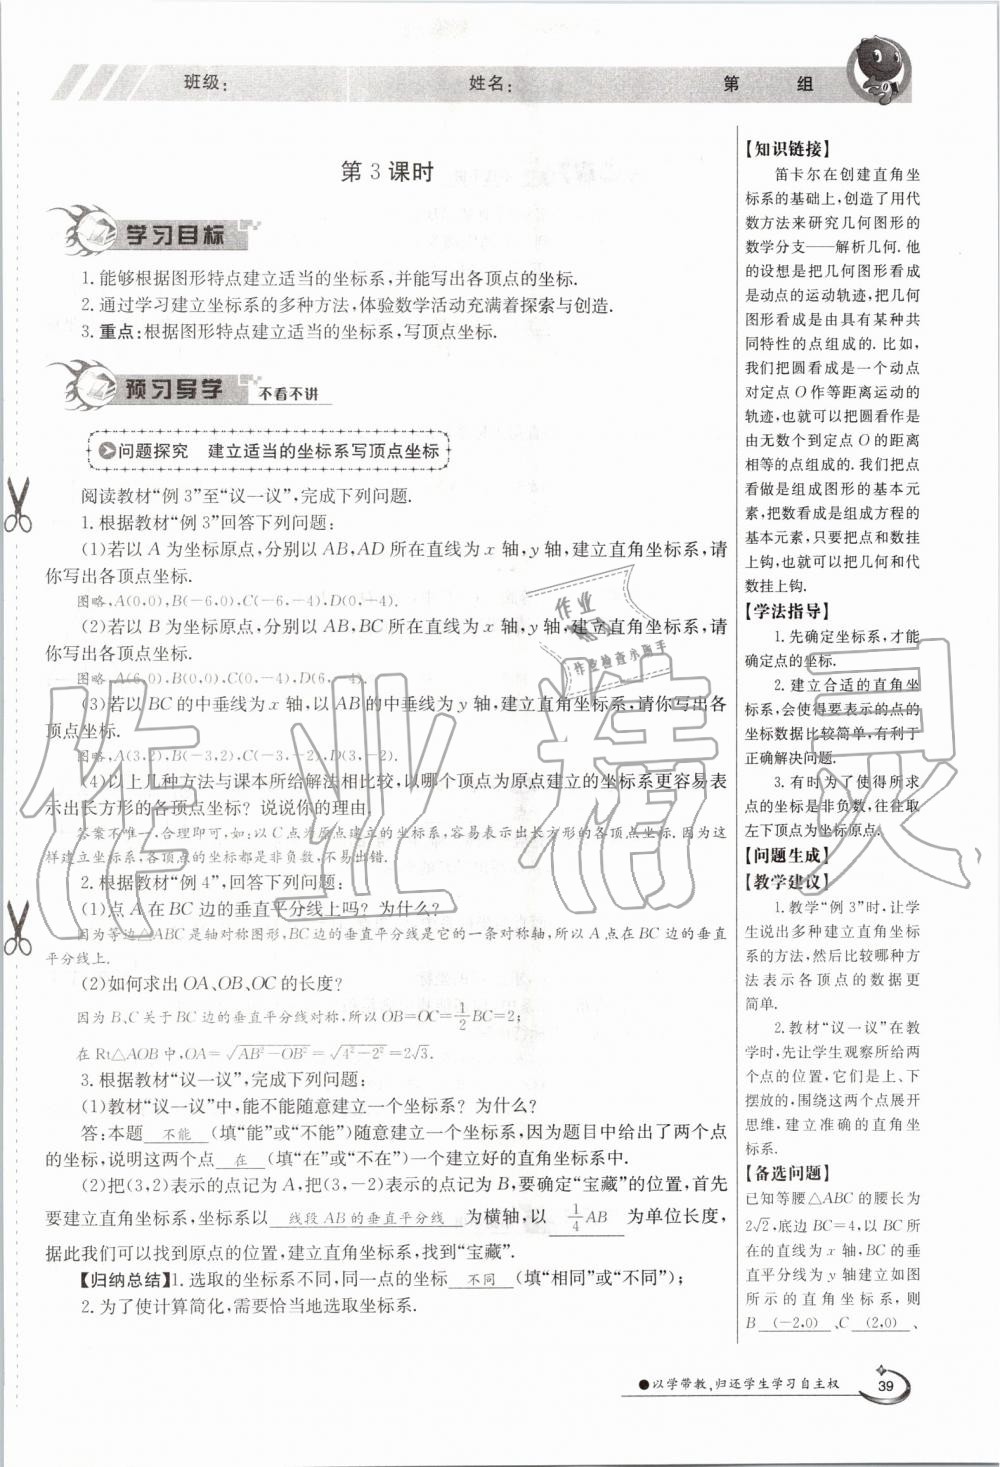 班级:
姓名:
第 组
第 3 课时
学习目标
1. 能够根据图形特点建立适当的坐标系,并能写出各顶点的坐标.
2. 通过学习建立坐标系的多种方法,体验数学活动充满着探索与创造.
3. 重点:根据图形特点建立适当的坐标系,写顶点坐标.
预习导学 不看不讲
问题探究 建立适当的坐标系写顶点坐标
阅读教材“例 3”至“议一议”,完成下列问题.
1. 根据教材“例 3”回答下列问题:
(1)若以 A 为坐标原点,分别以 AB,AD 所在直线为 x 轴,y 轴,建立直角坐标系,请
你写出各顶点坐标.
图略,A(0,0),B(-6,0),C(-6,-4),D(0,-4).
(2)若以 B 为坐标原点,分别以 AB,BC 所在直线为 x 轴,y 轴,建立直角坐标系,请
你写出各顶点坐标.
图略,A(6,0),B(0,0),C(0,-4),D(6,-4).
(3)若以 BC 的中垂线为 x 轴,以 AB 的中垂线为 y 轴,建立直角坐标系,请你写出各
顶点坐标.
图略,A(3,2),B(-3,2),C(-3,-2),D(3,-2).
(4)以上几种方法与课本所给解法相比较,以哪个顶点为原点建立的坐标系更容易表
示出长方形的各顶点坐标? 说说你的理由.
答案不唯一,合理即可,如:以 C 点为原点建立的坐标系,容易表示出长方形的各顶点坐标.因为这
样建立坐标系,各顶点的坐标都是非负数,不易出错.
2. 根据教材“例 4”,回答下列问题:
(1)点 A 在 BC 边的垂直平分线上吗? 为什么?
因为等边△ABC 是轴对称图形,BC 边的垂直平分线是它的一条对称轴,所以 A 点在 BC 边的垂直
平分线上.
(2)如何求出 OA、OB、OC 的长度?
因为 B、C 关于 BC 边的垂直平分线对称,所以 OB=OC=1/2 BC=2;
在 Rt△AOB 中,OA=√(AB²-OB²)=√(4²-2²)=2√3.
3. 根据教材“议一议”,完成下列问题:
(1)教材“议一议”中,能不能随意建立一个坐标系? 为什么?
答:本题 不能 (填“能”或“不能”)随意建立一个坐标系,因为题目中给出了两个点
的坐标,说明这两个点 在 (填“在”或“不在”)一个建立好的直角坐标系中.
(2)把(3,2)表示的点记为 A,把(3,-2)表示的点记为 B,要确定“宝藏”的位置,首先
要建立直角坐标系,坐标系以 线段 AB 的垂直平分线 为横轴,以 1/4 AB 为单位长度,
据此我们可以找到原点的位置,建立直角坐标系,找到“宝藏”.
【归纳总结】1. 选取的坐标系不同,同一点的坐标 不同 (填“相同”或“不同”);
2. 为了使计算简化,需要恰当地选取坐标系.
【知识链接】
笛卡尔在创建直角坐
标系的基础上,创造了用代
数方法来研究几何图形的
数学分支——解析几何. 他
的设想是把几何图形看成
是动点的运动轨迹,把几何
图形看成是由具有某种共
同特性的点组成的. 比如,
我们把圆看成是一个动点
对定点 O 作等距离运动的
轨迹,也就可以把圆看作是
由无数个到定点 O 的距离
相等的点组成的. 我们把点
看做是组成图形的基本元
素,把数看成是组成方程的
基本元素,只要把点和数挂
上钩,也就可以把几何和代
数挂上钩.
【学法指导】
1. 先确定坐标系,才能
确定点的坐标.
2. 建立合适的直角坐
标系,会使得要表示的点的
坐标数据比较简单,有利于
正确解决问题.
3. 有时为了使得所求
点的坐标是非负数,往往取
左下顶点为坐标原点.
【问题生成】
【教学建议】
1. 教学“例 3”时,让学
生说出多种建立直角坐标
系的方法,然后比较哪种方
法表示各顶点的数据更
简单.
2. 教材“议一议”在教
学时,先让学生观察所给两
个点的位置,它们是上、下
摆放的,围绕这两个点展开
思维,建立准确的直角坐
标系.
【备选问题】
已知等腰△ABC 的腰长为
2√2,底边 BC=4,以 BC 所
在的直线为 x 轴,BC 的垂
直平分线为 y 轴建立如图
所示的直角坐标系,则
B (-2,0) 、C (2,0) 、
●以学带教,归还学生学习自主权
39
作业精灵
作业
精灵
作业检查小助手